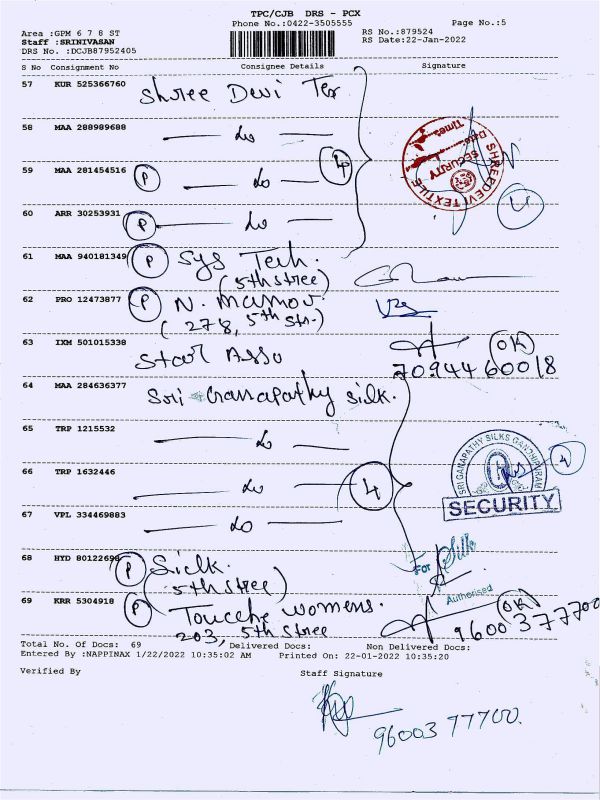 TPC/CJB DRS - PCX
Phone No.:0422-3505555
Page No.:5
Area :GPM 6 7 8 ST
RS No.:879524
Staff :SRINIVASAN
RS Date:22-Jan-2022
DRS No. :DCJB87952405
S No Consignment No Consignee Details Signature
57 KUR 525366760 Shree Devi Tex
58 MAA 288989688 — do —
4
59 MAA 281454516 P — do —
SHREEDEVI TEXTILE
SECURITY
Date:
Time:
60 ARR 30253931 P — do —
4
61 MAA 940181349 P Sys Tech.
(5th stree)
62 PRO 12473877 P N. Mamov.
(278, 5th Str.)
63 IXM 501015338 Star Asso
OK
7094460018
64 MAA 284636377 Sri Ganapathy silk.
65 TRP 1215532 — do —
SRI GANAPATHY SILKS GANDHIPURAM
SECURITY
4
66 TRP 1632446 — do —
4
67 VPL 334469883 — do —
68 HYD 80122698 P Silk.
(5th stree)
For Silk
Authorised
69 KRR 5304918 P Touche womens.
203, 5th stree
OK
9600377700
Total No. Of Docs: 69 Delivered Docs: Non Delivered Docs:
Entered By :NAPPINAX 1/22/2022 10:35:02 AM Printed On: 22-01-2022 10:35:20
Verified By Staff Signature
9600377700.